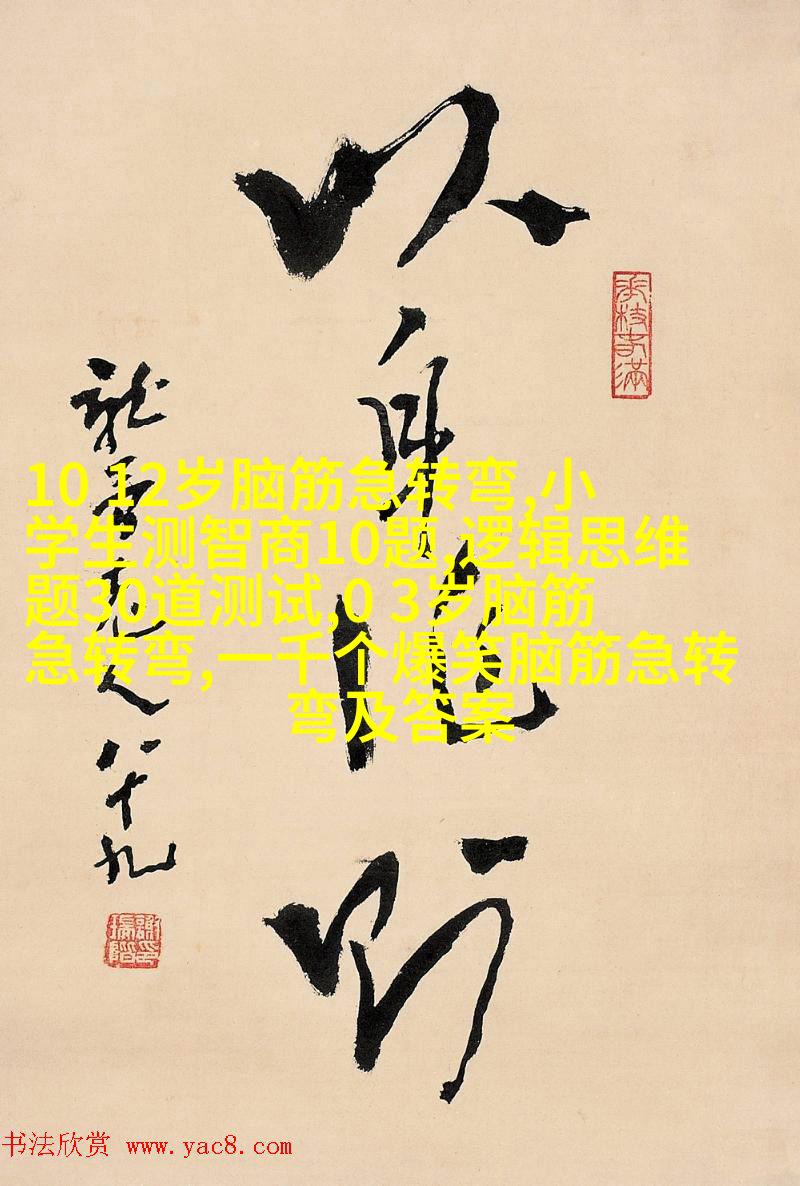 以身作则
老人八十九
10 12岁脑筋急转弯,小
学生测智商10题,逻辑思维
题30道测试,0 3岁脑筋
急转弯,一千个爆笑脑筋急转
弯及答案
书法欣赏 www.yac8.com